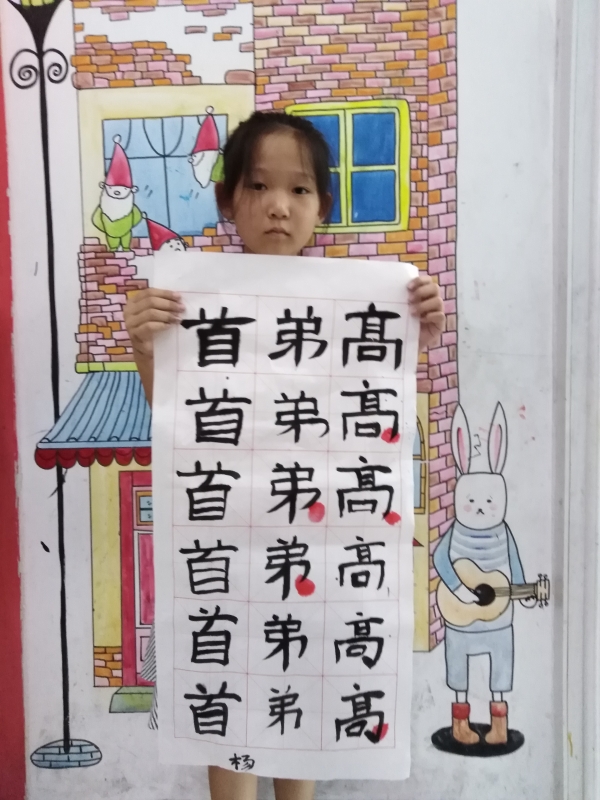 高高高高高高
弟弟弟弟弟弟
首首首首首首
杨